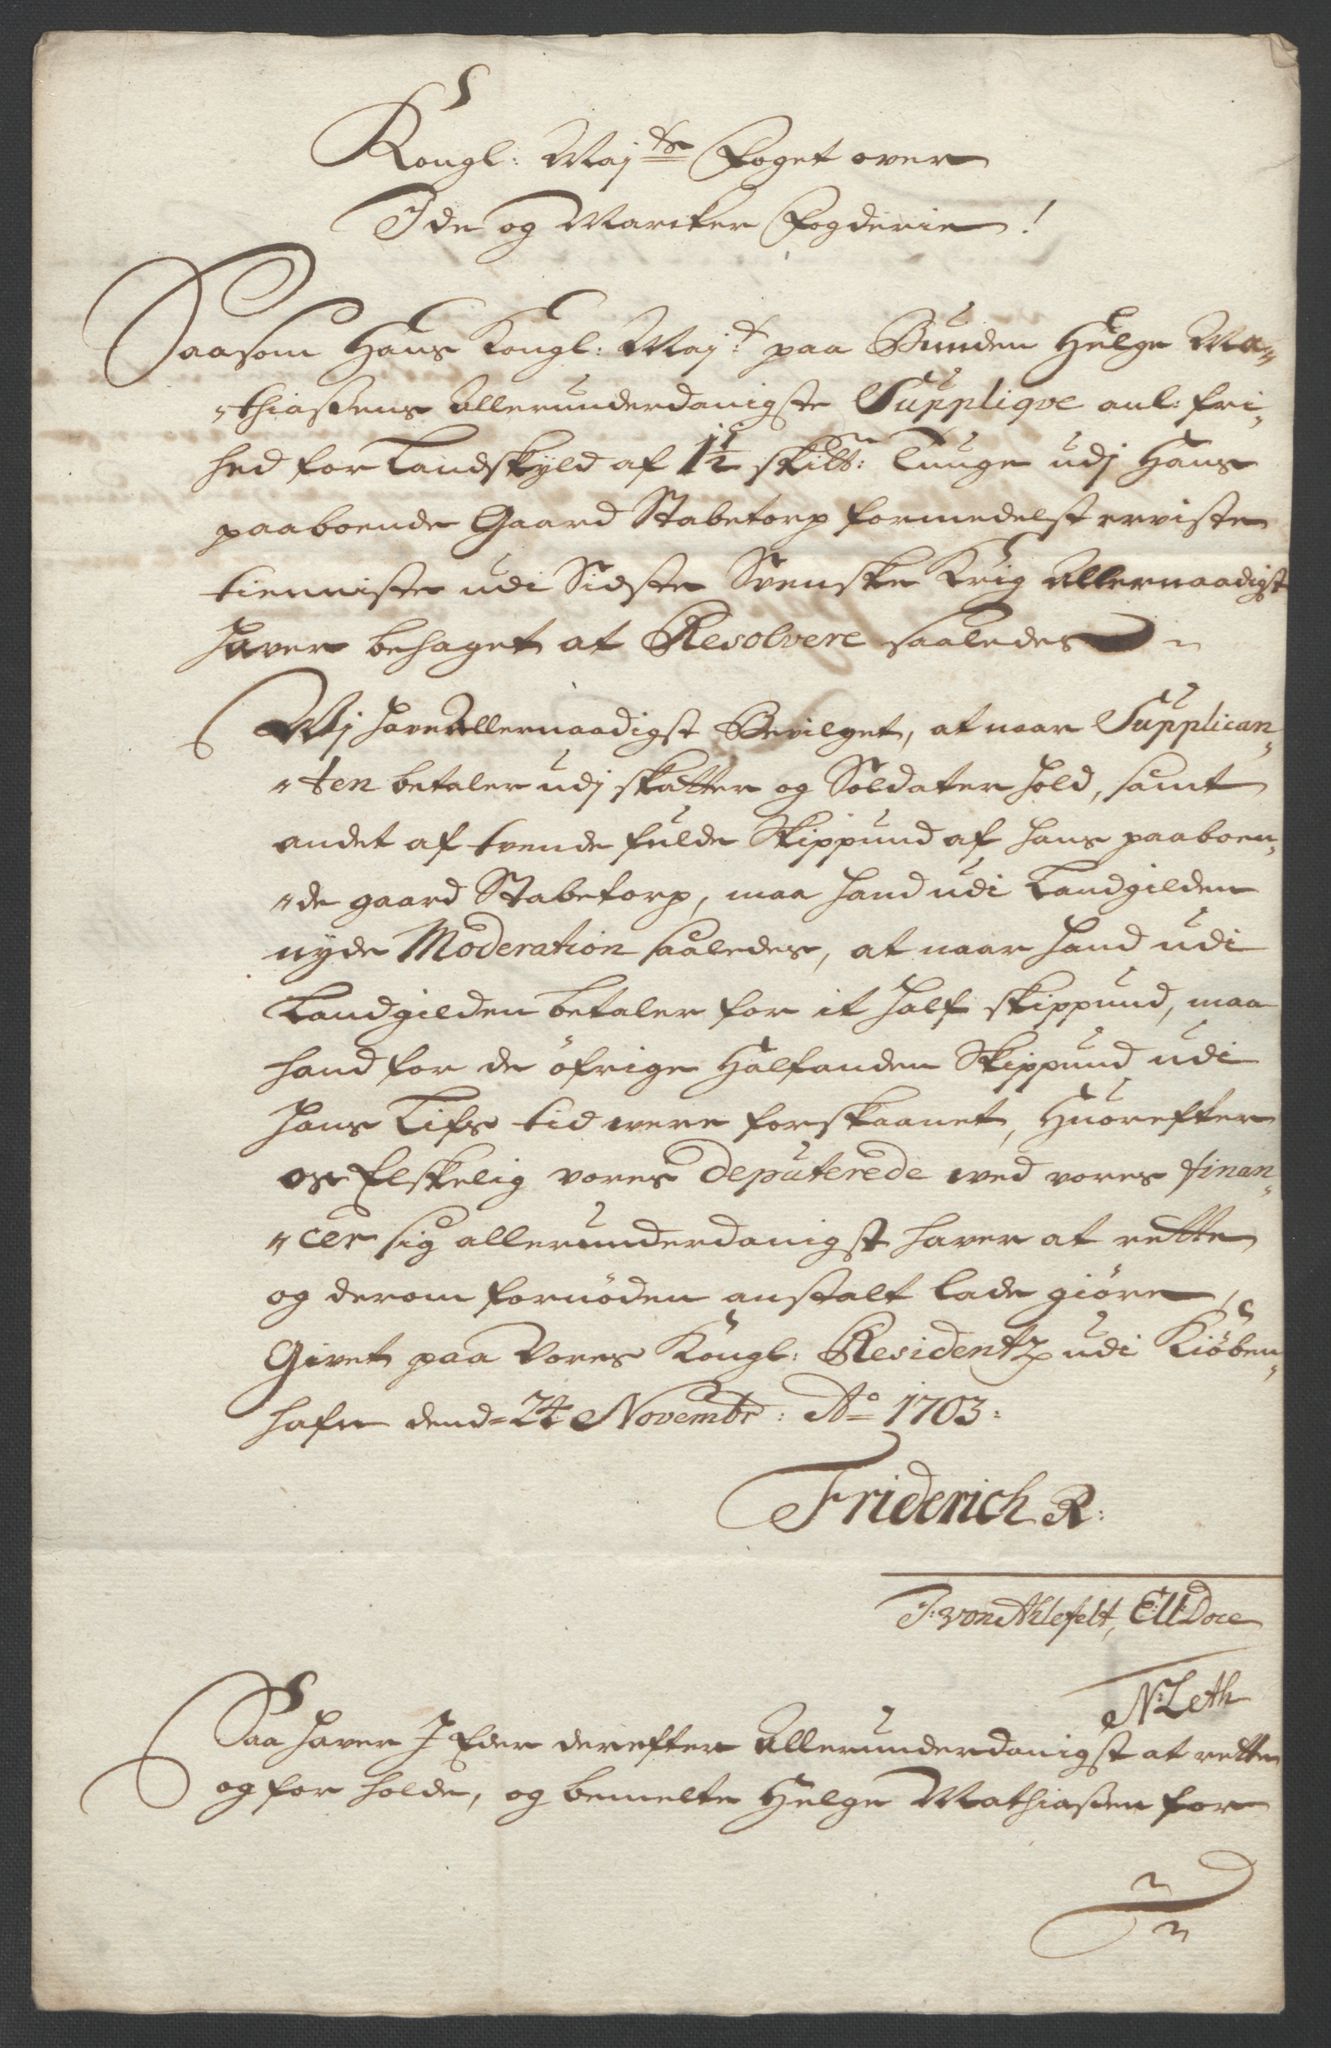 Kongl: Maj:ts Foget over
Ide og Marcker Fogderie!
Saasom Hans Kongl: Maj:t paa Bunden Helge Ma-
thiaßens Allerunderdanigste Supplique anl: fri-
hed for Landskyld af 1½ skibb: Tunge udj Hans
paaboende Gaard Stabetorp formedelst erviste
tienniste udi Sidste Svenske Krig Allernaadigst
haver behaget at Resolvere saaledes
Wj have Allernaadigst Bevilget, at naar Supplican-
ten betaler udj skatter og Soldater hold, samt
andet af tvende fulde Skippund af hans paaboen-
de gaard Stabetorp, maa hand udi Landgilden
nyde Moderation saaledes, at naar hand udi
Landgilden betaler for it half skippund, maa
hand for de öfrige Halfanden Skippund udi
hans Lifs tid were forskaanet, Huorefter
os Elskelig vores Deputerede wed vores finan-
cer sig allerunderdanigst haver at rette
og derom fornöden anstalt lade giöre,
Givet paa Vores Kongl: Residentz udi Kiöben-
hafn dend 24 Novembr: Ao 1703:
Friderich R:
J: von Ahlefelt,
N: Leth
Saa haver J Eder derefter Allerunderdanigst at rette
og for holde, og bemelte Helge Mathiaßen for